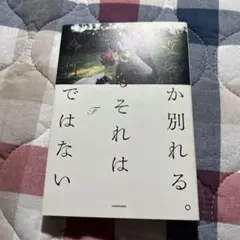 か別れる。
それは
F
ではない
KADOKAWA